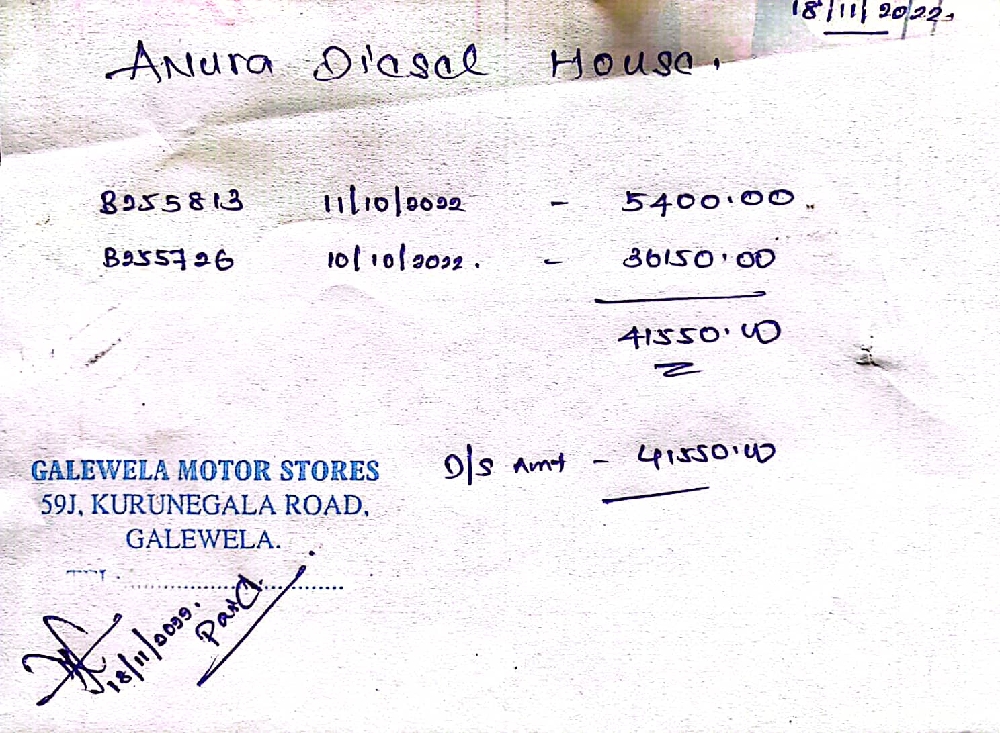 18/11/2022.
Anura Diesal House.
B255813 11/10/2022 - 5400.00
B255726 10/10/2022. - 36150.00
41550.00
D/S Amt - 41550.00
GALEWELA MOTOR STORES
59J, KURUNEGALA ROAD,
GALEWELA.
18/11/2022.
Paid.